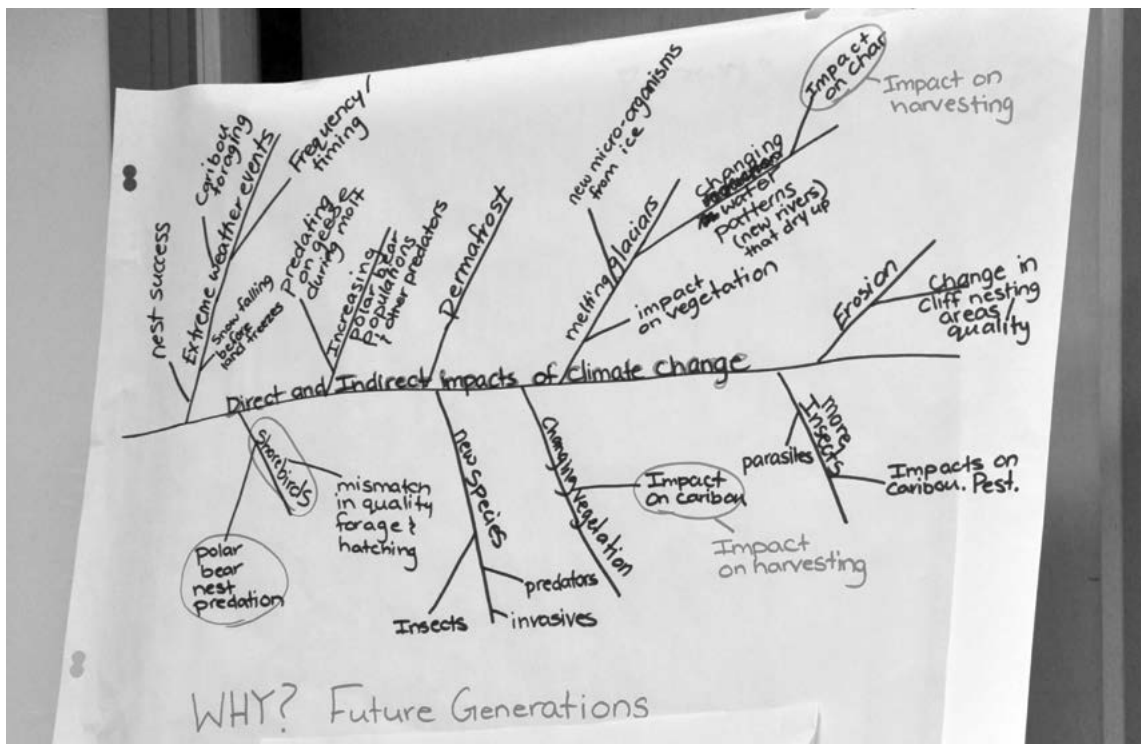 nest success
Extreme weather events
Caribou
foraging
Frequency/
timing
Snow falling
before
land freezes
Predating
on geese
during molt
Increasing
polar bear
populations
& other predators
Permafrost
melting glaciars
new micro-organisms
from ice
impact
on vegetation
changing
water
patterns
(new rivers)
that dry up
Impact
on char
Impact on
harvesting
Erosion
Change in
cliff nesting
areas/
quality
Direct and Indirect impacts of climate change
shorebirds
mismatch
in quality
forage &
hatching
polar
bear
nest
predation
new species
Insects
predators
invasives
Changing Vegetation
Impact
on caribou
Impact
on harvesting
more
Insects
parasites
Impacts on
caribou. Pest.
WHY? Future Generations